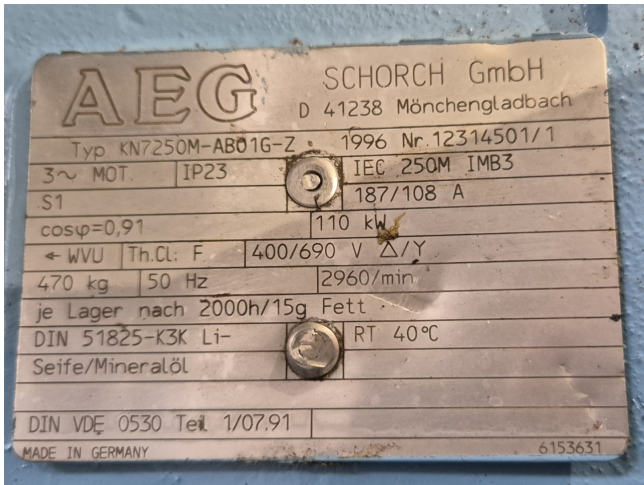 AEG SCHORCH GmbH
D 41238 Mönchengladbach
Typ KN7250M-AB01G-Z 1996 Nr.12314501/1
3~ MOT. IP23 IEC 250M IMB3
S1 187/108 A
cosφ=0,91 110 kW
← WVU Th.Cl: F 400/690 V Δ/Y
470 kg 50 Hz 2960/min
je Lager nach 2000h/15g Fett
DIN 51825-K3K Li- RT 40°C
Seife/Mineralöl
DIN VDE 0530 Teil 1/07.91
MADE IN GERMANY 6153631